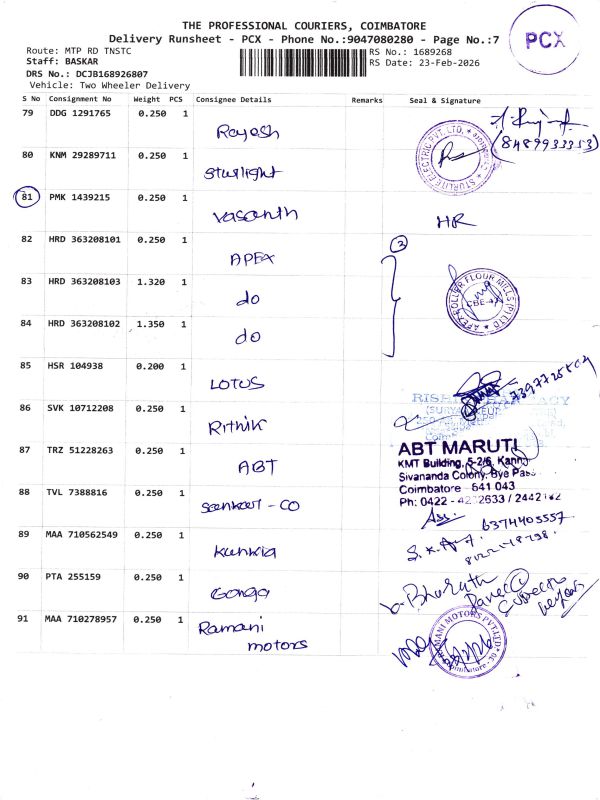 THE PROFESSIONAL COURIERS, COIMBATORE
Delivery Runsheet - PCX - Phone No.:9047080280 - Page No.:7
PCX
Route: MTP RD TNSTC
RS No.: 1689268
Staff: BASKAR
RS Date: 23-Feb-2026
DRS No.: DCJB168926807
Vehicle: Two Wheeler Delivery
S No Consignment No Weight PCS Consignee Details Remarks Seal & Signature
79 DDG 1291765 0.250 1 Rayesh
(8489933353)
STURLITE ELECTRIC PVT. LTD.
80 KNM 29289711 0.250 1 Sturlight
81 PMK 1439215 0.250 1 Vasanth HR
82 HRD 363208101 0.250 1 APEX
3
83 HRD 363208103 1.320 1 do
APEX ROLLER FLOUR MILLS (P) LTD
84 HRD 363208102 1.350 1 do
85 HSR 104938 0.200 1 LOTUS
86 SVK 10712208 0.250 1 Rithik
87 TRZ 51228263 0.250 1 ABT
ABT MARUTI
KMT Building, 5-2/6,
Sivananda Colony, Bye Pass
Coimbatore - 641 043
Ph: 0422 -
88 TVL 7388816 0.250 1 Sankar - CO
Ass. 6374403557
89 MAA 710562549 0.250 1 Kunkia
90 PTA 255159 0.250 1 Gonga
Bharath
91 MAA 710278957 0.250 1 Ramani
motors
RAMANI MOTORS PVT LTD